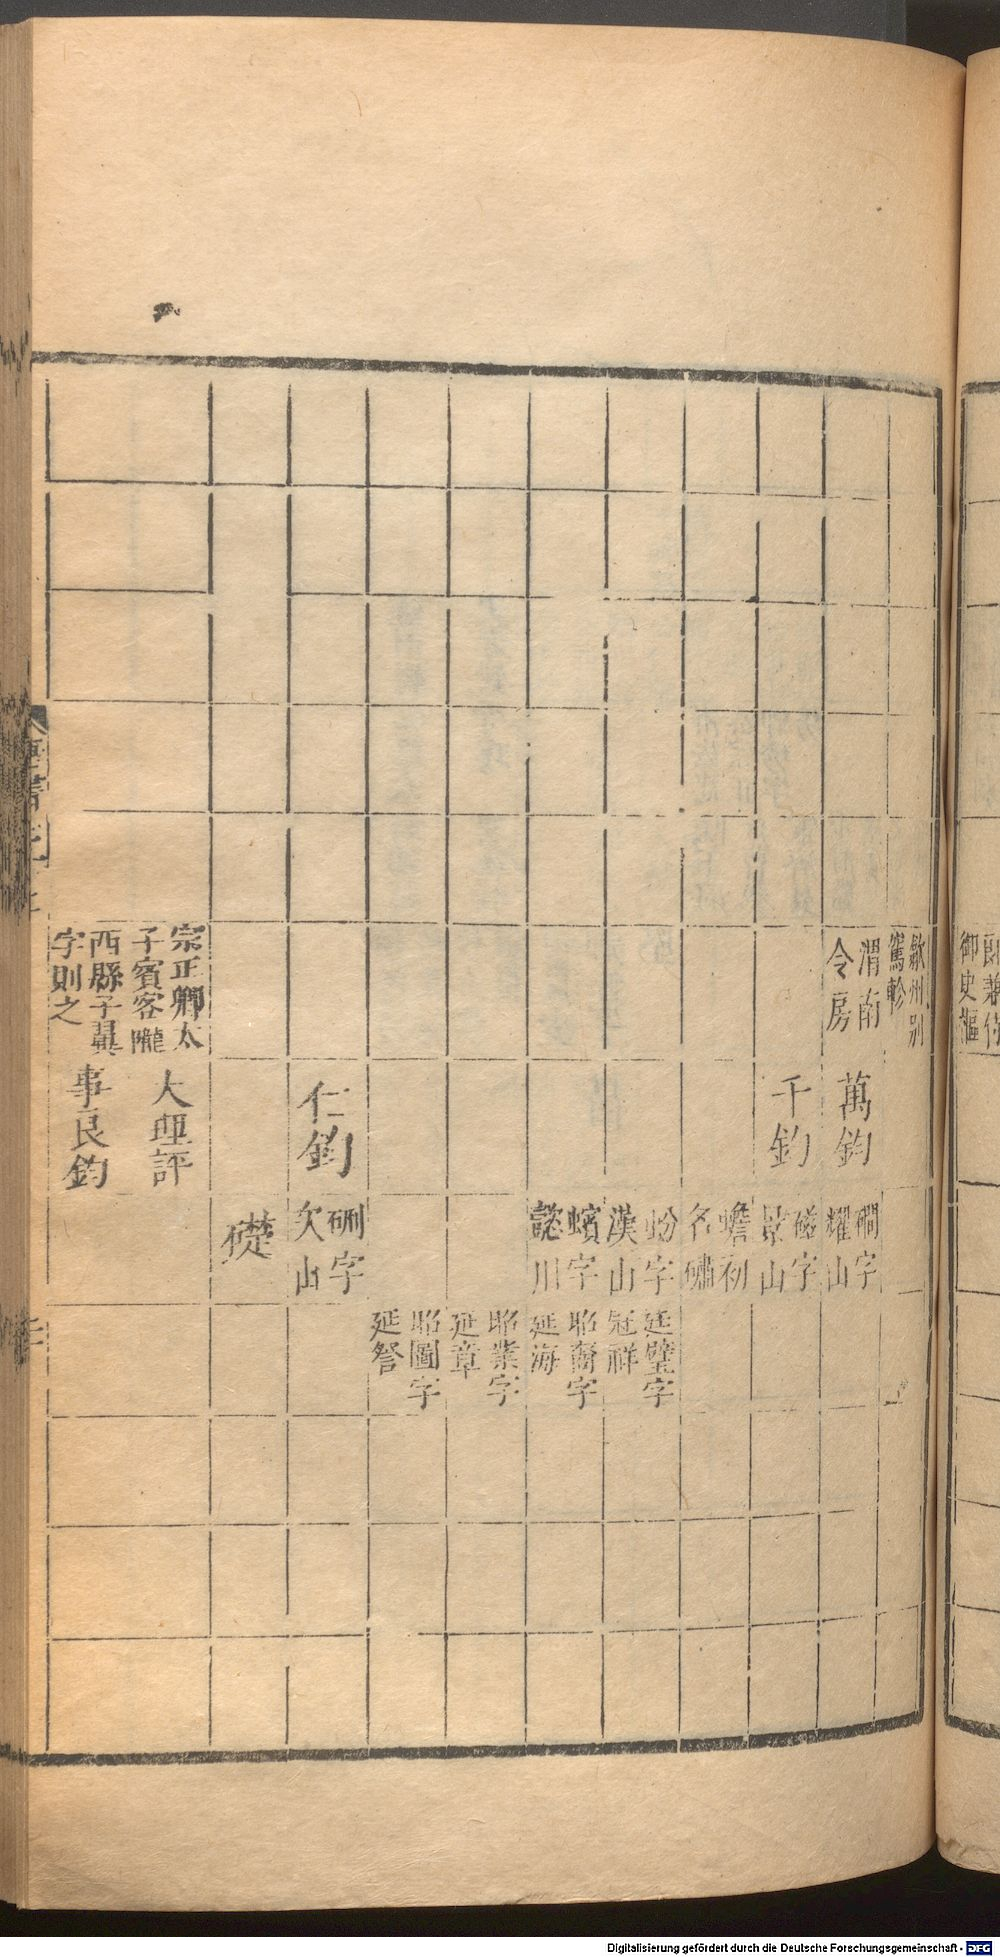 歙州别
駕軫
渭南
令房
萬鈞
磵字
耀山
千鈞
磁字
景山
蟾初
名磠
蚡字
漢山
廷璧字
冠祥
蠙字
懿川
昭裔字
延海
昭業字
延章
昭圖字
延詧
仁鈞
硎字
次山
礎
宗正卿太
子賓客隴
西縣子巽
字則之
大理評
事良鈞
郎兼侍
御史樞
Digitalisierung gefördert durch die Deutsche Forschungsgemeinschaft - DFG